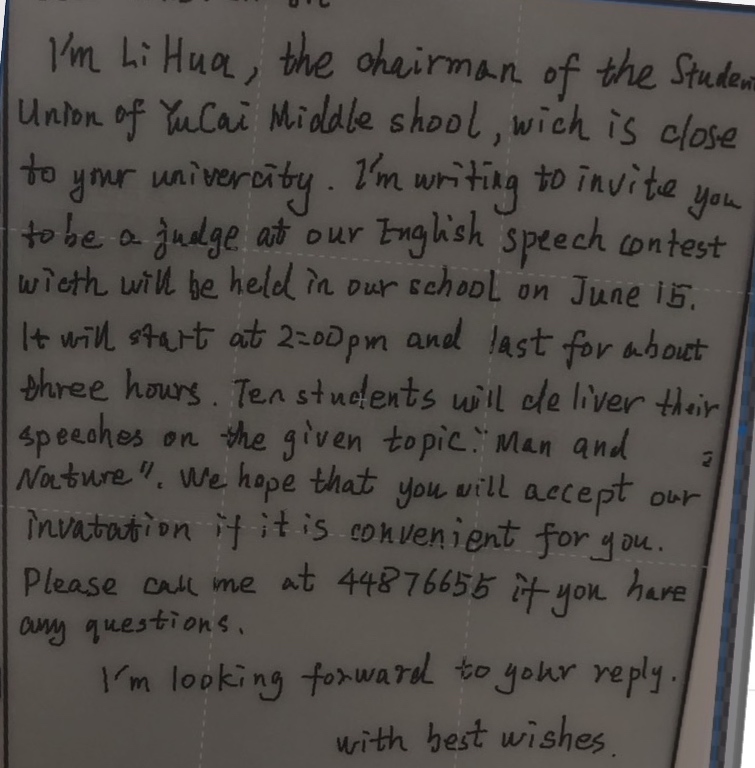 I'm Li Hua, the chairman of the Studen
Union of YuCai Middle shool, wich is close
to your univercity. I'm writing to invite you
to be a judge at our English speech contest
wicth will be held in our school on June 15.
It will start at 2:00pm and last for about
three hours. Ten students will deliver their
speeches on the given topic:"Man and
Nature". We hope that you will accept our
invatation if it is convenient for you.
Please call me at 44876655 if you have
any questions.
I'm looking forward to your reply.
with best wishes.